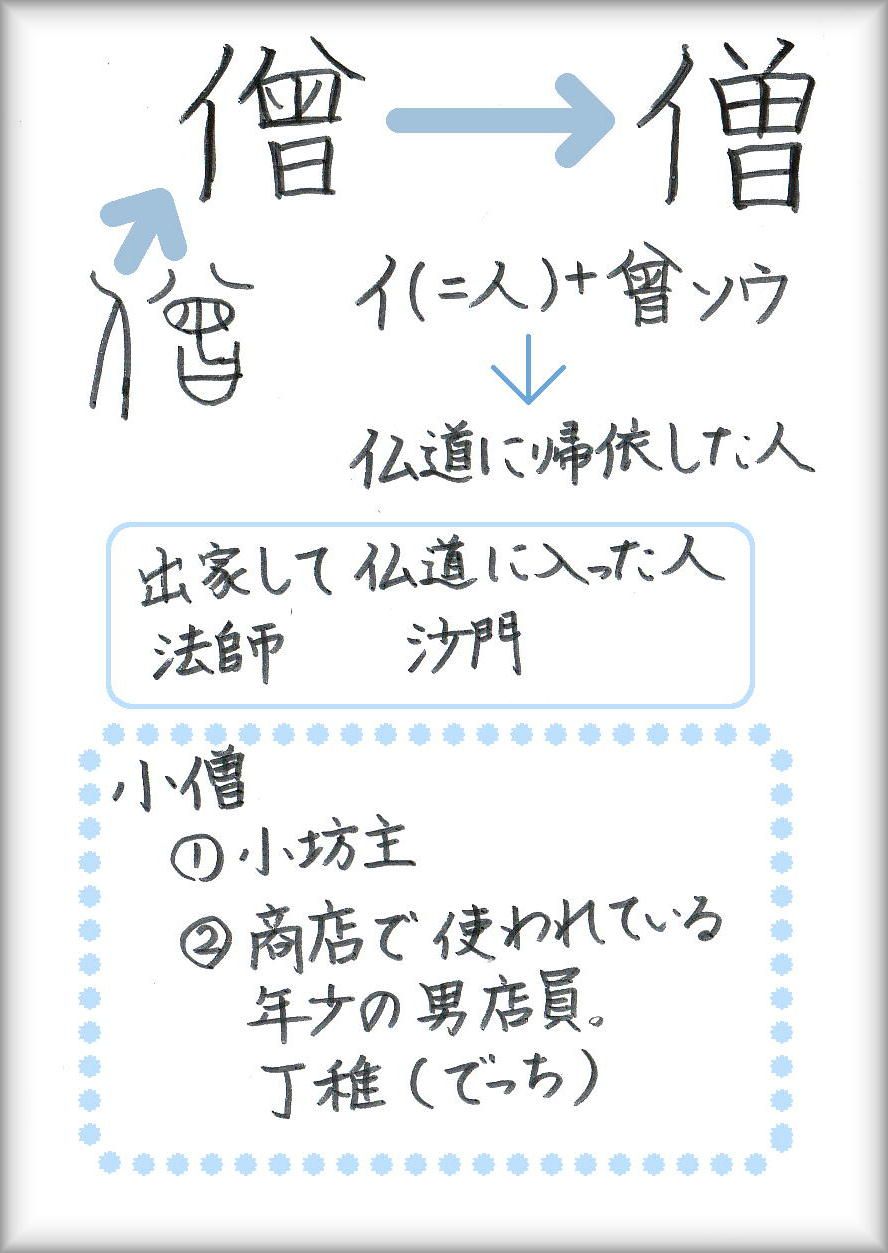 僧 僧
僧
亻(=人)+曾ソウ
仏道に帰依した人
出家して仏道に入った人
法師 沙門
小僧
①小坊主
②商店で使われている
年少の男店員。
丁稚(でっち)